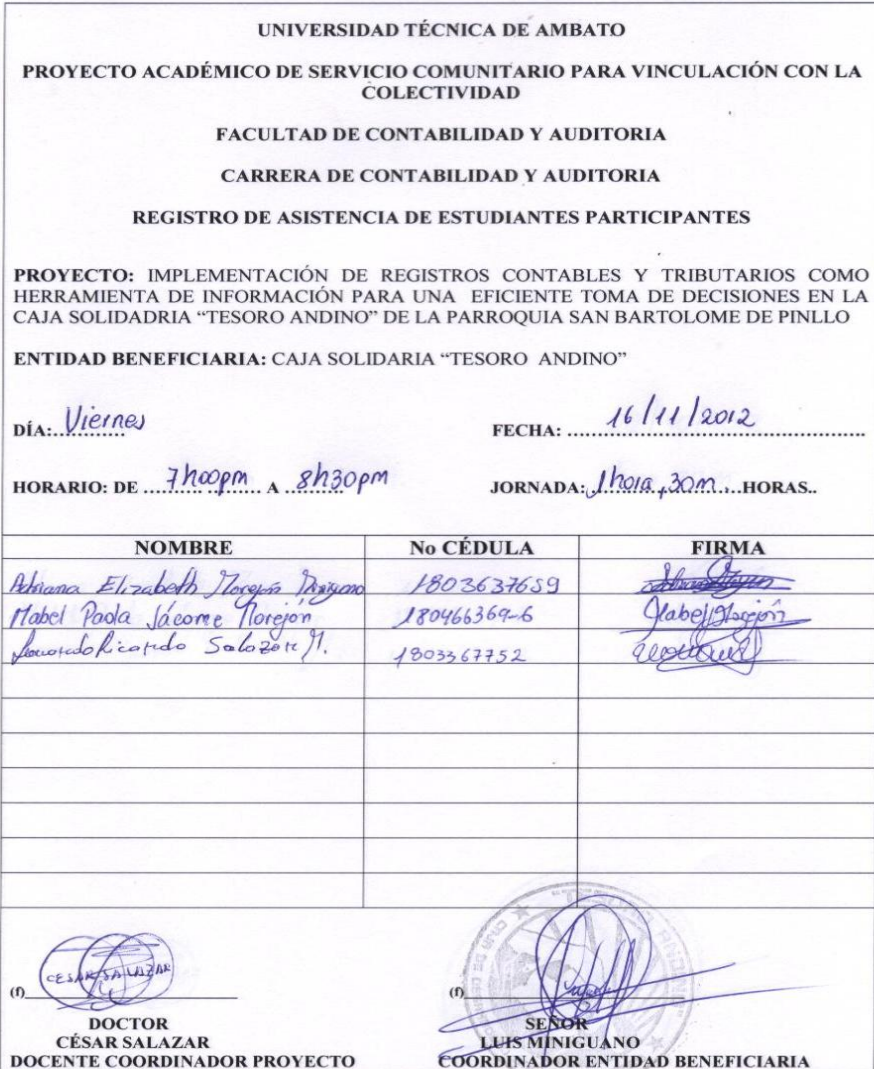 UNIVERSIDAD TÉCNICA DE AMBATO
PROYECTO ACADÉMICO DE SERVICIO COMUNITARIO PARA VINCULACIÓN CON LA
COLECTIVIDAD
FACULTAD DE CONTABILIDAD Y AUDITORIA
CARRERA DE CONTABILIDAD Y AUDITORIA
REGISTRO DE ASISTENCIA DE ESTUDIANTES PARTICIPANTES
PROYECTO: IMPLEMENTACIÓN DE REGISTROS CONTABLES Y TRIBUTARIOS COMO
HERRAMIENTA DE INFORMACIÓN PARA UNA EFICIENTE TOMA DE DECISIONES EN LA
CAJA SOLIDADRIA “TESORO ANDINO” DE LA PARROQUIA SAN BARTOLOME DE PINLLO
ENTIDAD BENEFICIARIA: CAJA SOLIDARIA “TESORO ANDINO”
DÍA: Viernes FECHA: 16/11/2012
HORARIO: DE 7h00pm A 8h30pm JORNADA: 1hora, 30m HORAS..
NOMBRE No CÉDULA FIRMA
Adriana Elizabeth Morejón 1803637659
Mabel Paola Jácome Morejón 180466369-6 Mabel Morejón
Ricardo Salazar M. 1803367752
CESAR SALAZAR
(f) (f)
DOCTOR SEÑOR
CÉSAR SALAZAR LUIS MINIGUANO
DOCENTE COORDINADOR PROYECTO COORDINADOR ENTIDAD BENEFICIARIA